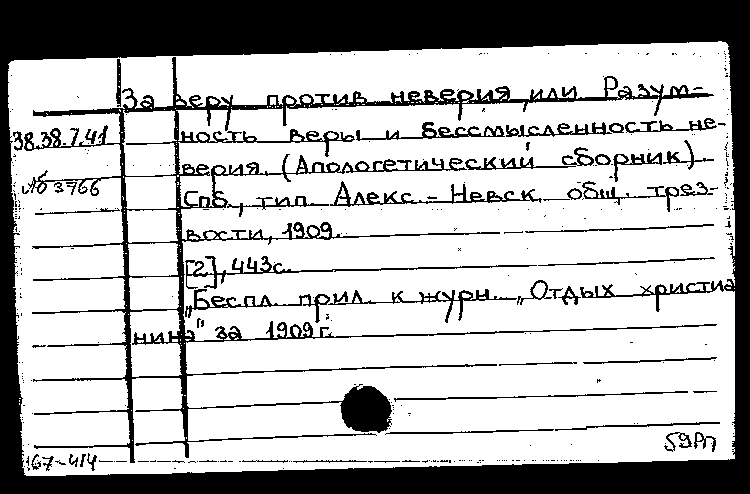 За веру против неверия, или Разум-
38.38.7.41 ность веры и бессмысленность не-
верия. (Апологетический сборник).
№ 3766 Спб., тип. Алекс.-Невск. общ. трез-
вости, 1909.
[2], 443с.
„Беспл. прил. к журн. „Отдых христиа
нина" за 1909г.
167-414